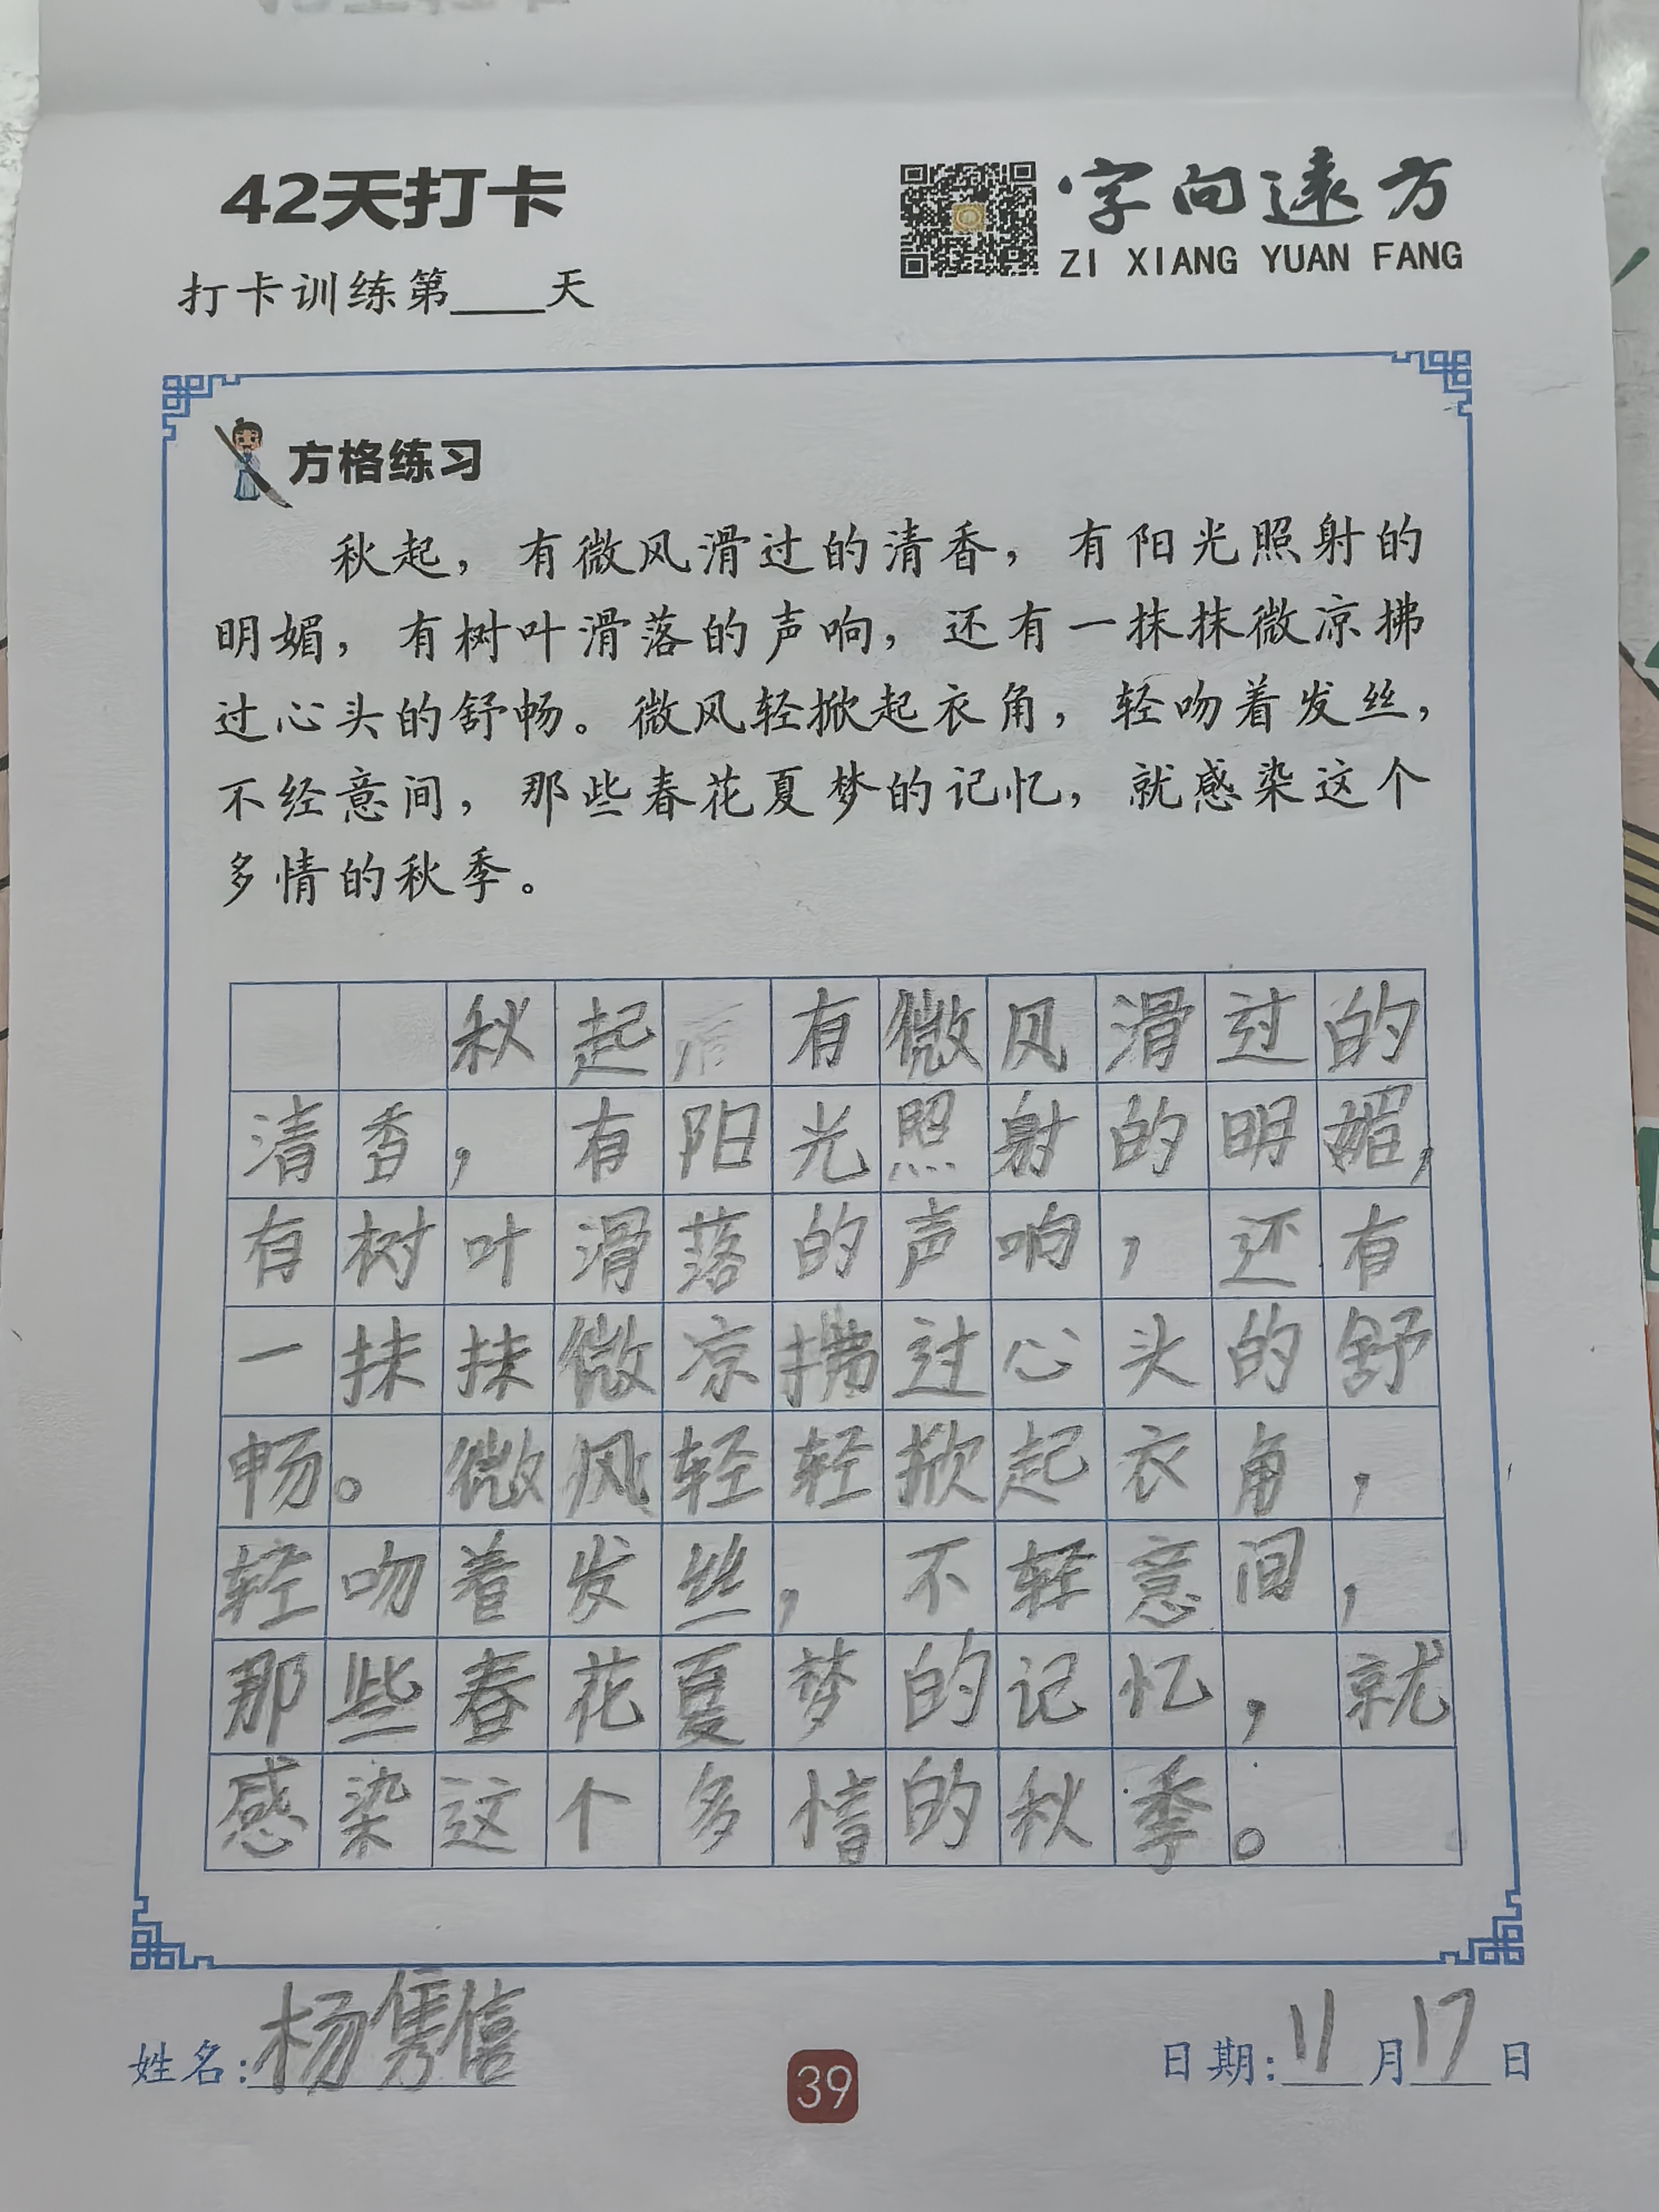 42天打卡
字向远方
ZI XIANG YUAN FANG
打卡训练第____天
方格练习
秋起，有微风滑过的清香，有阳光照射的
明媚，有树叶滑落的声响，还有一抹抹微凉拂
过心头的舒畅。微风轻掀起衣角，轻吻着发丝，
不经意间，那些春花夏梦的记忆，就感染这个
多情的秋季。
秋起 有微风滑过的
清香，有阳光照射的明媚，
有树叶滑落的声响，还有
一抹抹微凉拂过心头的舒
畅。微风轻轻掀起衣角，
轻吻着发丝，不轻意间，
那些春花夏梦的记忆，就
感染这个多情的秋季。
姓名：杨隽僖
39
日期：11月17日